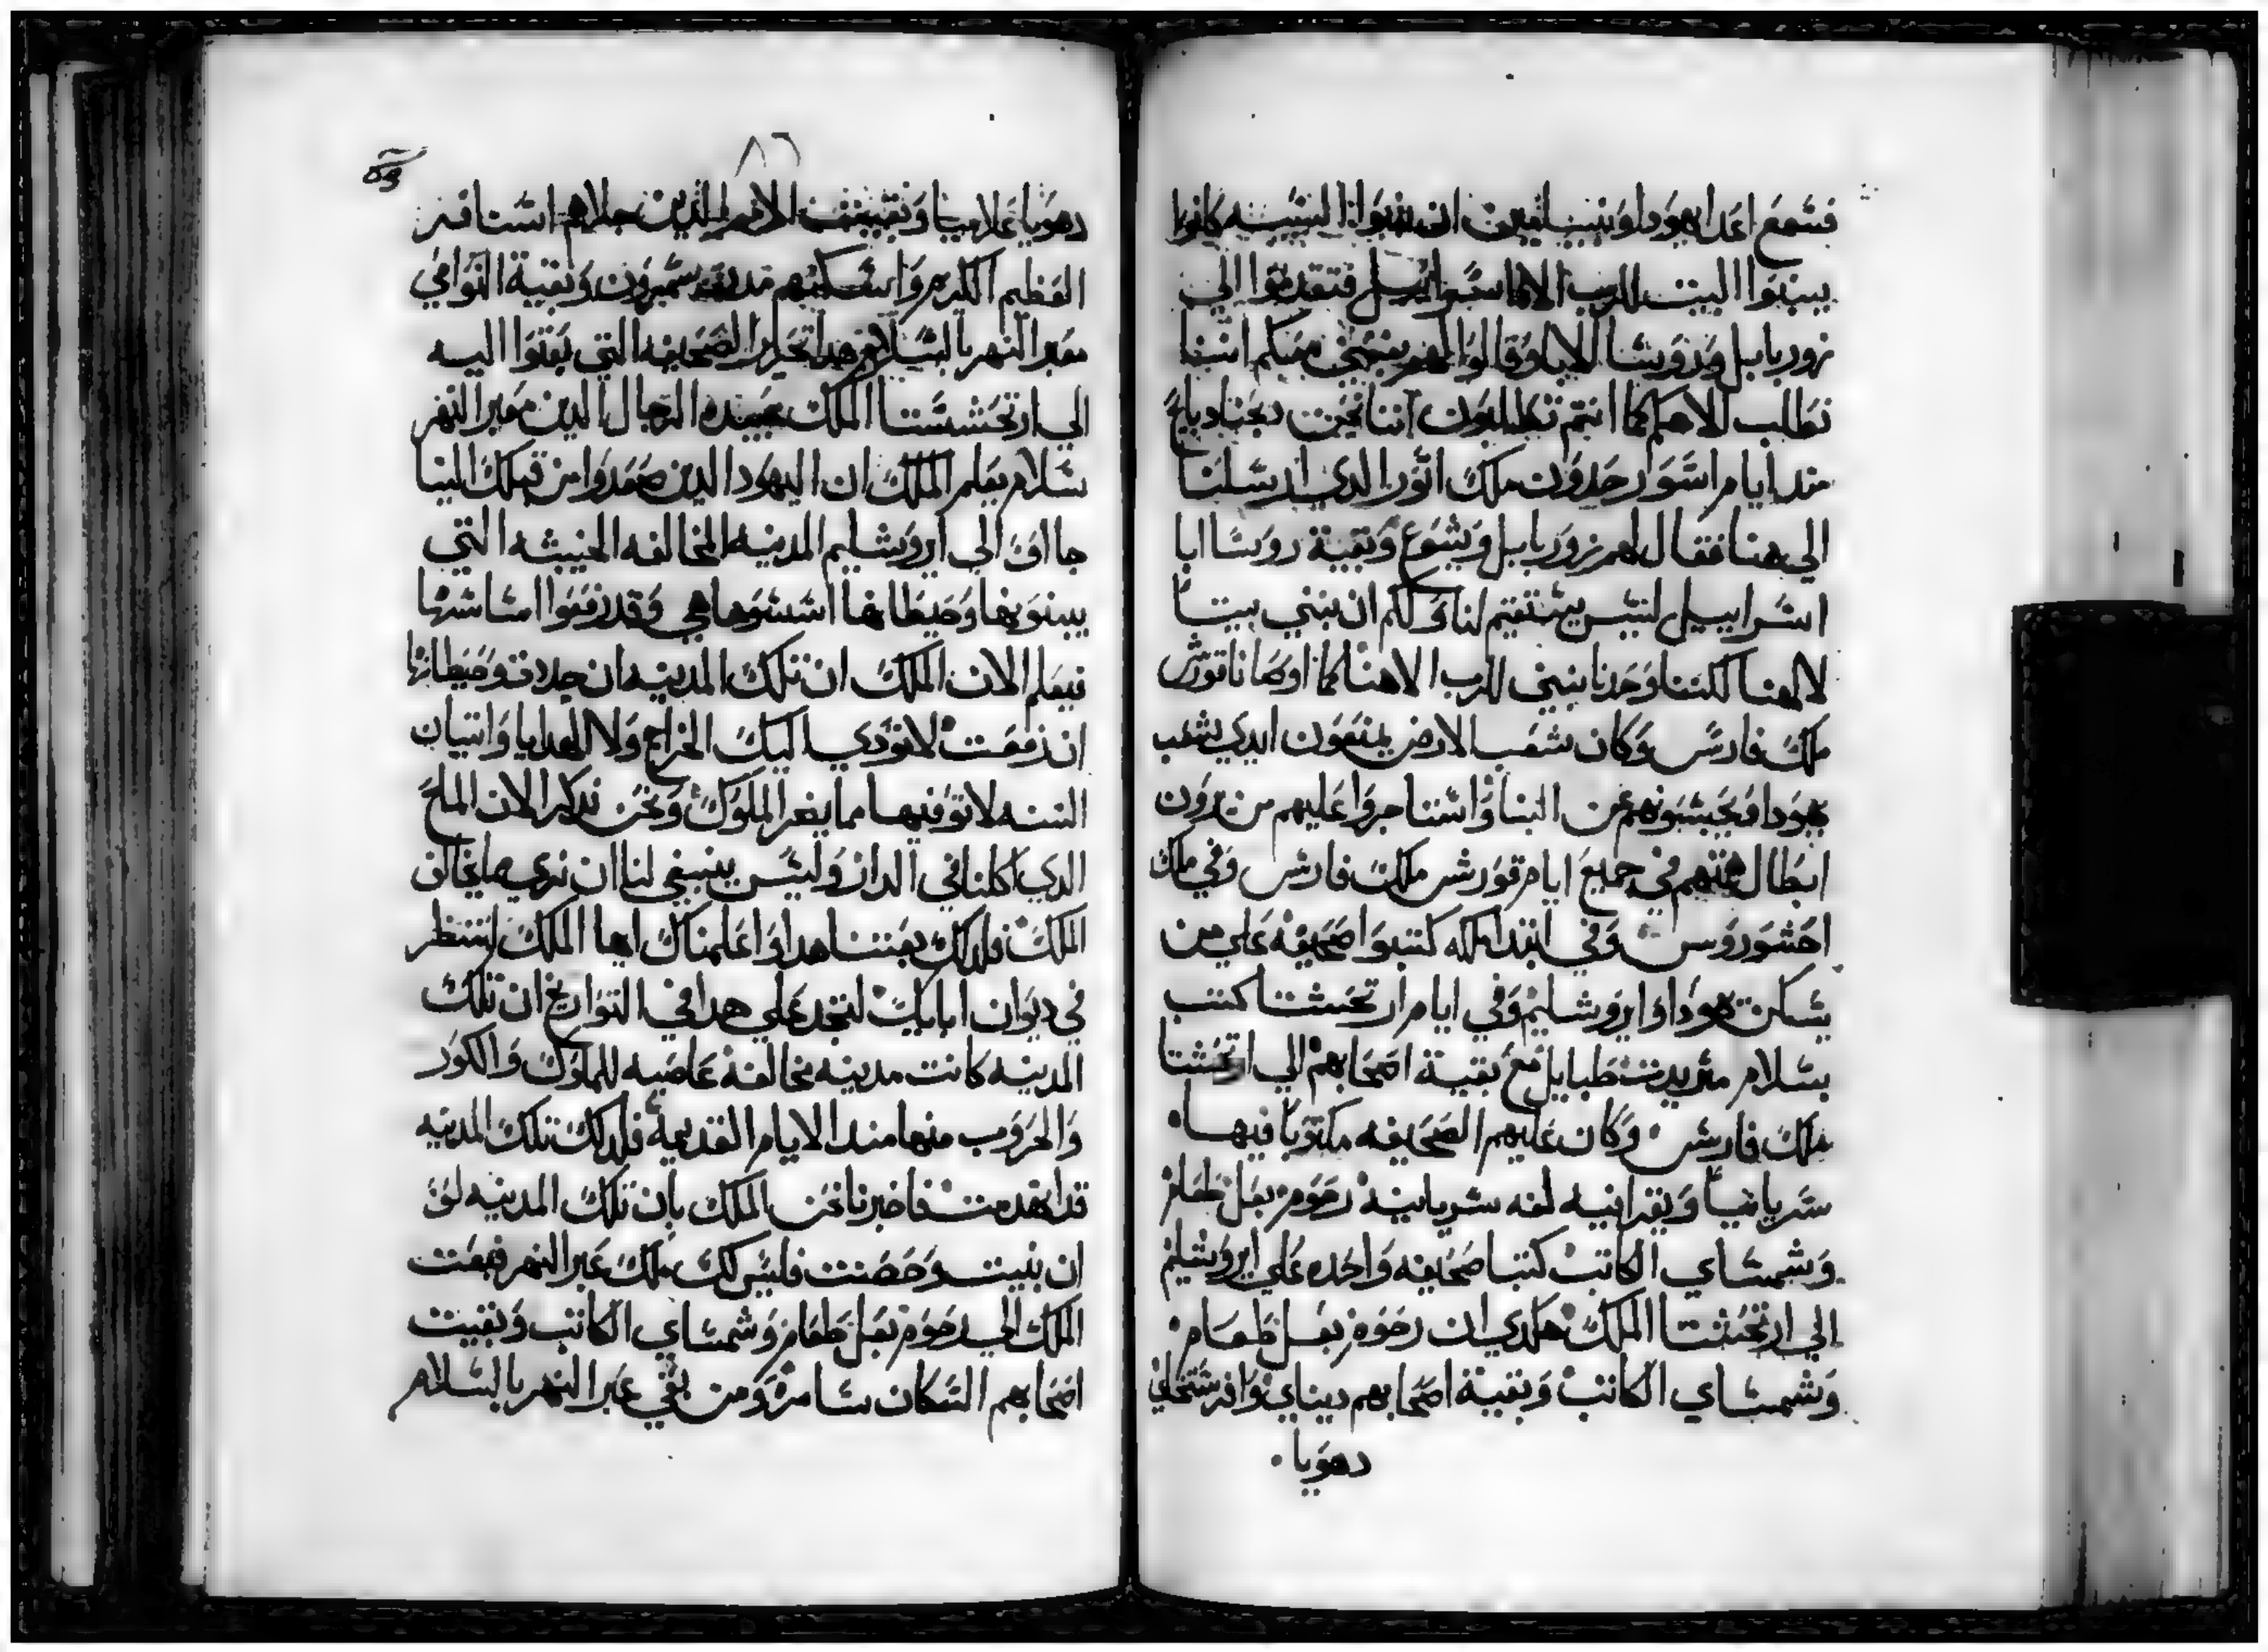 فسمع اعدا يهودا وبنيامين ان بنوا السبيه كانوا
يبنوا البيت للرب الاه اسراييل فتقدموا الي
زوربابل وروسا الابا وقالوا لهم نبني معكم اننا
نطلب الاهكم كما انتم تطلبون اننا نحن دبحنا دبايح
مند ايام اسوار حدون ملك اتور الدي ارسلنا
الي هنا فقال لهم زوربابل ويشوع وبقية روسا ابا
اسراييل ليس يستقيم لنا ولكم ان نبني بيتا
لالهنا لكننا وحدنا نبني للرب الاهنا كما اوصانا قورش
ملك فارس وكان شعب الارض يمنعون ايدي شعب
يهودا ويحبسونهم عن البنا واستاجروا عليهم من يرون
ابطال همتهم في جميع ايام قورش ملك فارس وفي ملك
احشوروس وفي ابتدا ملكه كتبوا صحيفه علي من
يسكن يهودا وايروشليم وفي ايام ارتحشتا كتب
بسلام متريدت طبابل مع بقية اصحابهم الي ارتحشتا
ملك فارس وكان عليهم الصحيفه مكتوبا فيها
سريانيا ونقرانيه لغه سريانية رحوم بعل طعام
وشمساي الكاتب كتبا صحيفه واحده علي ايروشليم
الي ارتحشتا الملك هكدي ان رحوم بعل طعام
وشمساي الكاتب وبقية اصحابهم ديناي وافرستخاي
دهويا
٨٦
دهويا علاميا وبقيت الامم الدين جلاهم استافر
العظيم المكرم واسكنهم مدينة سمرون وبقية النواحي
معبر النهر بالسلام هدا تحرير الصحيفه التي بعتوا اليه
الي ارتحششتا الملك عبيده الرجال الدين معبر النهر
سلام يعلم الملك ان اليهود الدين صعدوا من قبلك الينا
جااوا الي اروشليم المدينه المخالفه الخبيثه التي
يبنونها وحيطانها اسسوها هي وقد رفعوا اساساتها
فيعلم الان الملك ان تلك المدينه ان جددت وحيطانها
ان رفعت لا تودي اليك الخراج ولا الهدايا واتيان
السنه لا توفيها مما يضر الملوك ونحن ندكر الان الملح
الدي اكلنا في الدار وليس ينبغي لنا ان نري ما يخالف
الملك فلدلك بعتنا هدا واعلمناك ايها الملك لتنظر
في ديوان ابايك لتجد علي هدا في التواريخ ان تلك
المدينه كانت مدينه مخالفه عاصيه للملوك والكور
والحروب منها مند الايام القديمة فلدلك تلك المدينه
قد انهدمت فاخبرنا نحن الملك بان تلك المدينه لو
ان بنيت وحصنت فليس لك ملك عبر النهر فبعت
الملك الي رحوم بعل طعام وشمساي الكاتب وبقيت
اصحابهم السكان سامرة ومن بقي عبر النهر بالسلام